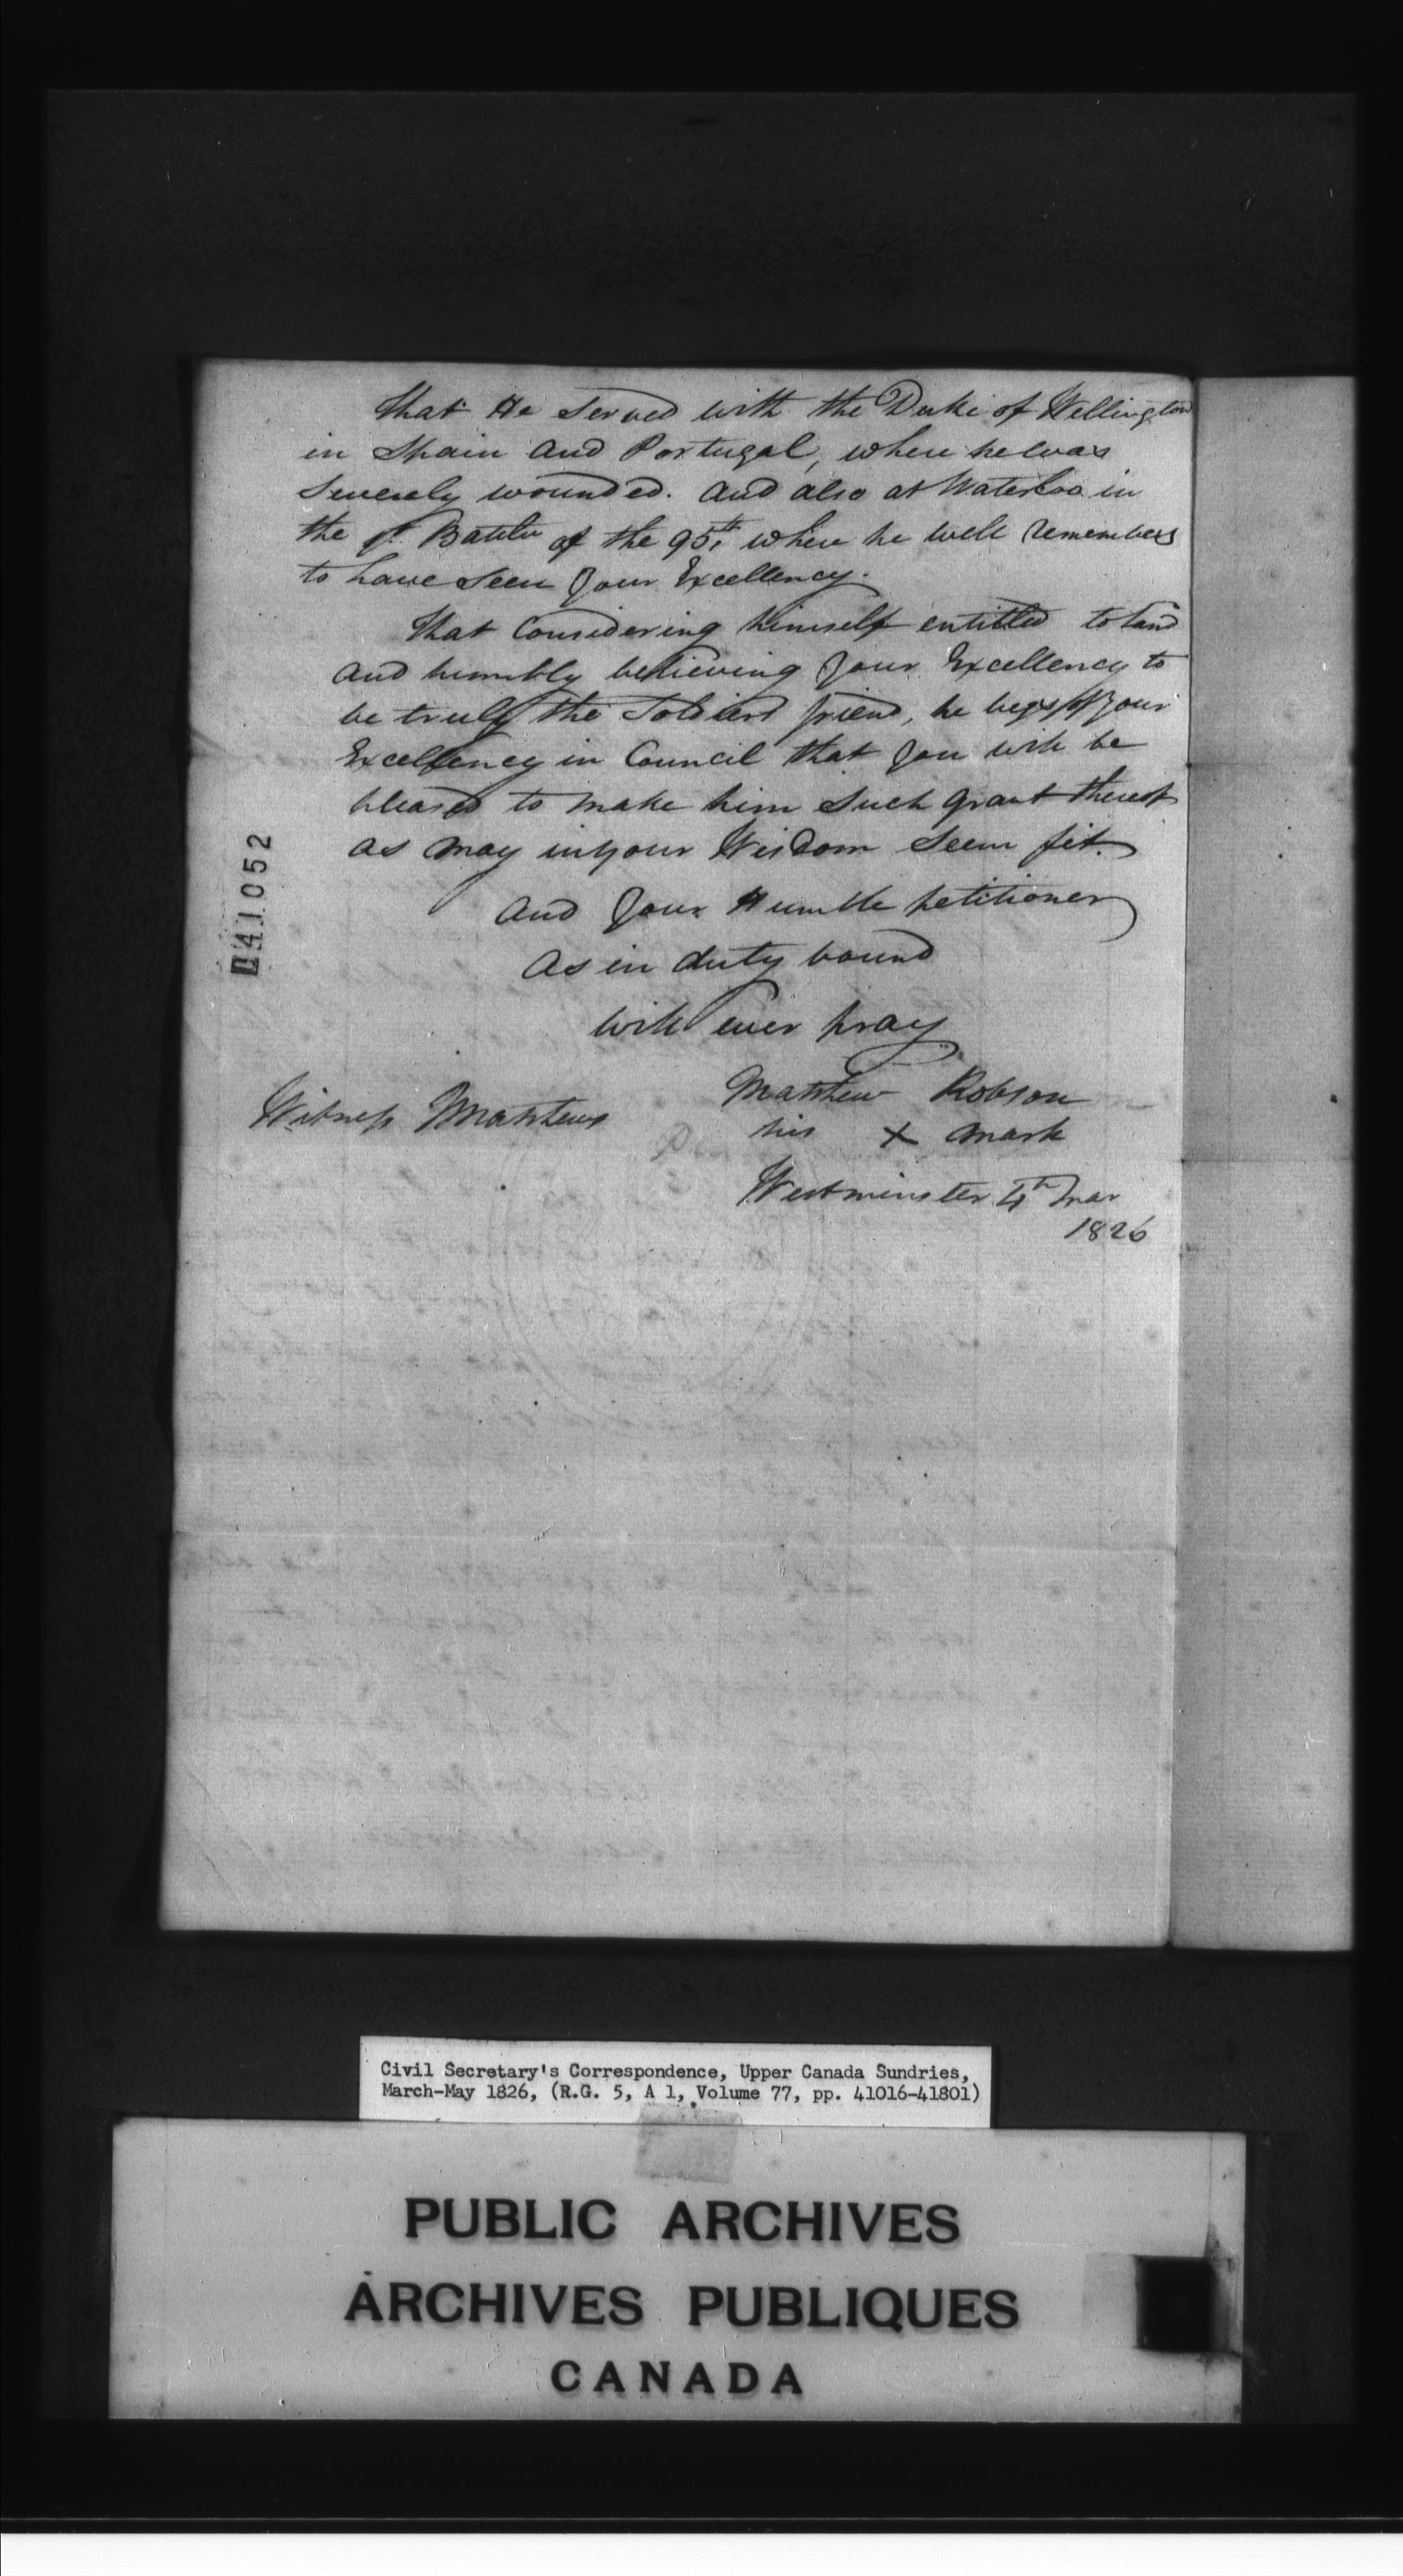 That He Served with the Duke of Wellington
in Spain and Portugal, where he was
Severely wounded. and also at Waterloo in
the 1st Battn of the 95th where he well remembers
to have seen Your Excellency.
That Considering himself entitled to Land
and humbly believing Your Excellency to
be truly the Soldiers friend, he begs of Your
Excellency in Council that You will be
pleased to make him Such grant thereof
as may in your Wisdom Seem fit.
And Your Humble petitioner
As in duty bound
will ever pray
Matthew Robson
his X mark
Witness Matthews
Westminster 4th Mar
1826
041052
Civil Secretary's Correspondence, Upper Canada Sundries,
March-May 1826, (R.G. 5, A 1, Volume 77, pp. 41016-41801)
PUBLIC ARCHIVES
ARCHIVES PUBLIQUES
CANADA